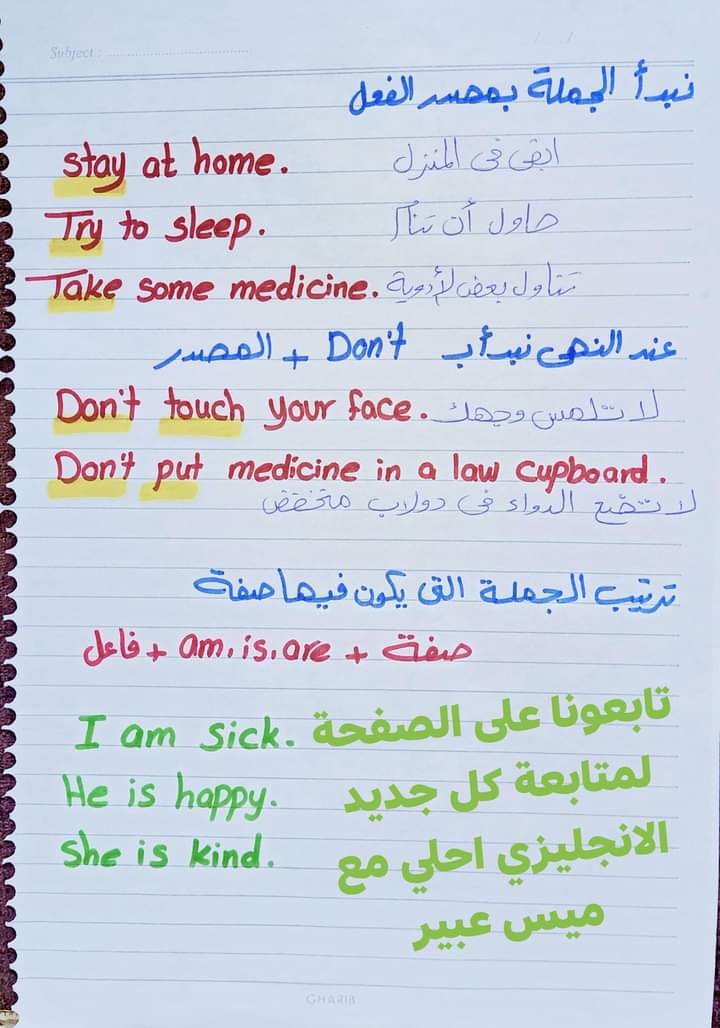 Subject : ..............................
/ /
نبدأ الجملة بمصدر الفعل
stay at home. ابقى فى المنزل
Try to sleep. حاول أن تنام
Take some medicine. تتناول بعض الأدوية
عند النهى نبدأ ب Don't + المصدر
Don't touch your face. لا تلمس وجهك
Don't put medicine in a law cupboard.
لا تضع الدواء فى دولاب منخفض
ترتيب الجملة التى يكون فيها صفة
فاعل + am. is. are + صفة
I am sick. تابعونا على الصفحة
He is happy. لمتابعة كل جديد
She is kind. الانجليزي احلي مع
ميس عبير
GHARIB